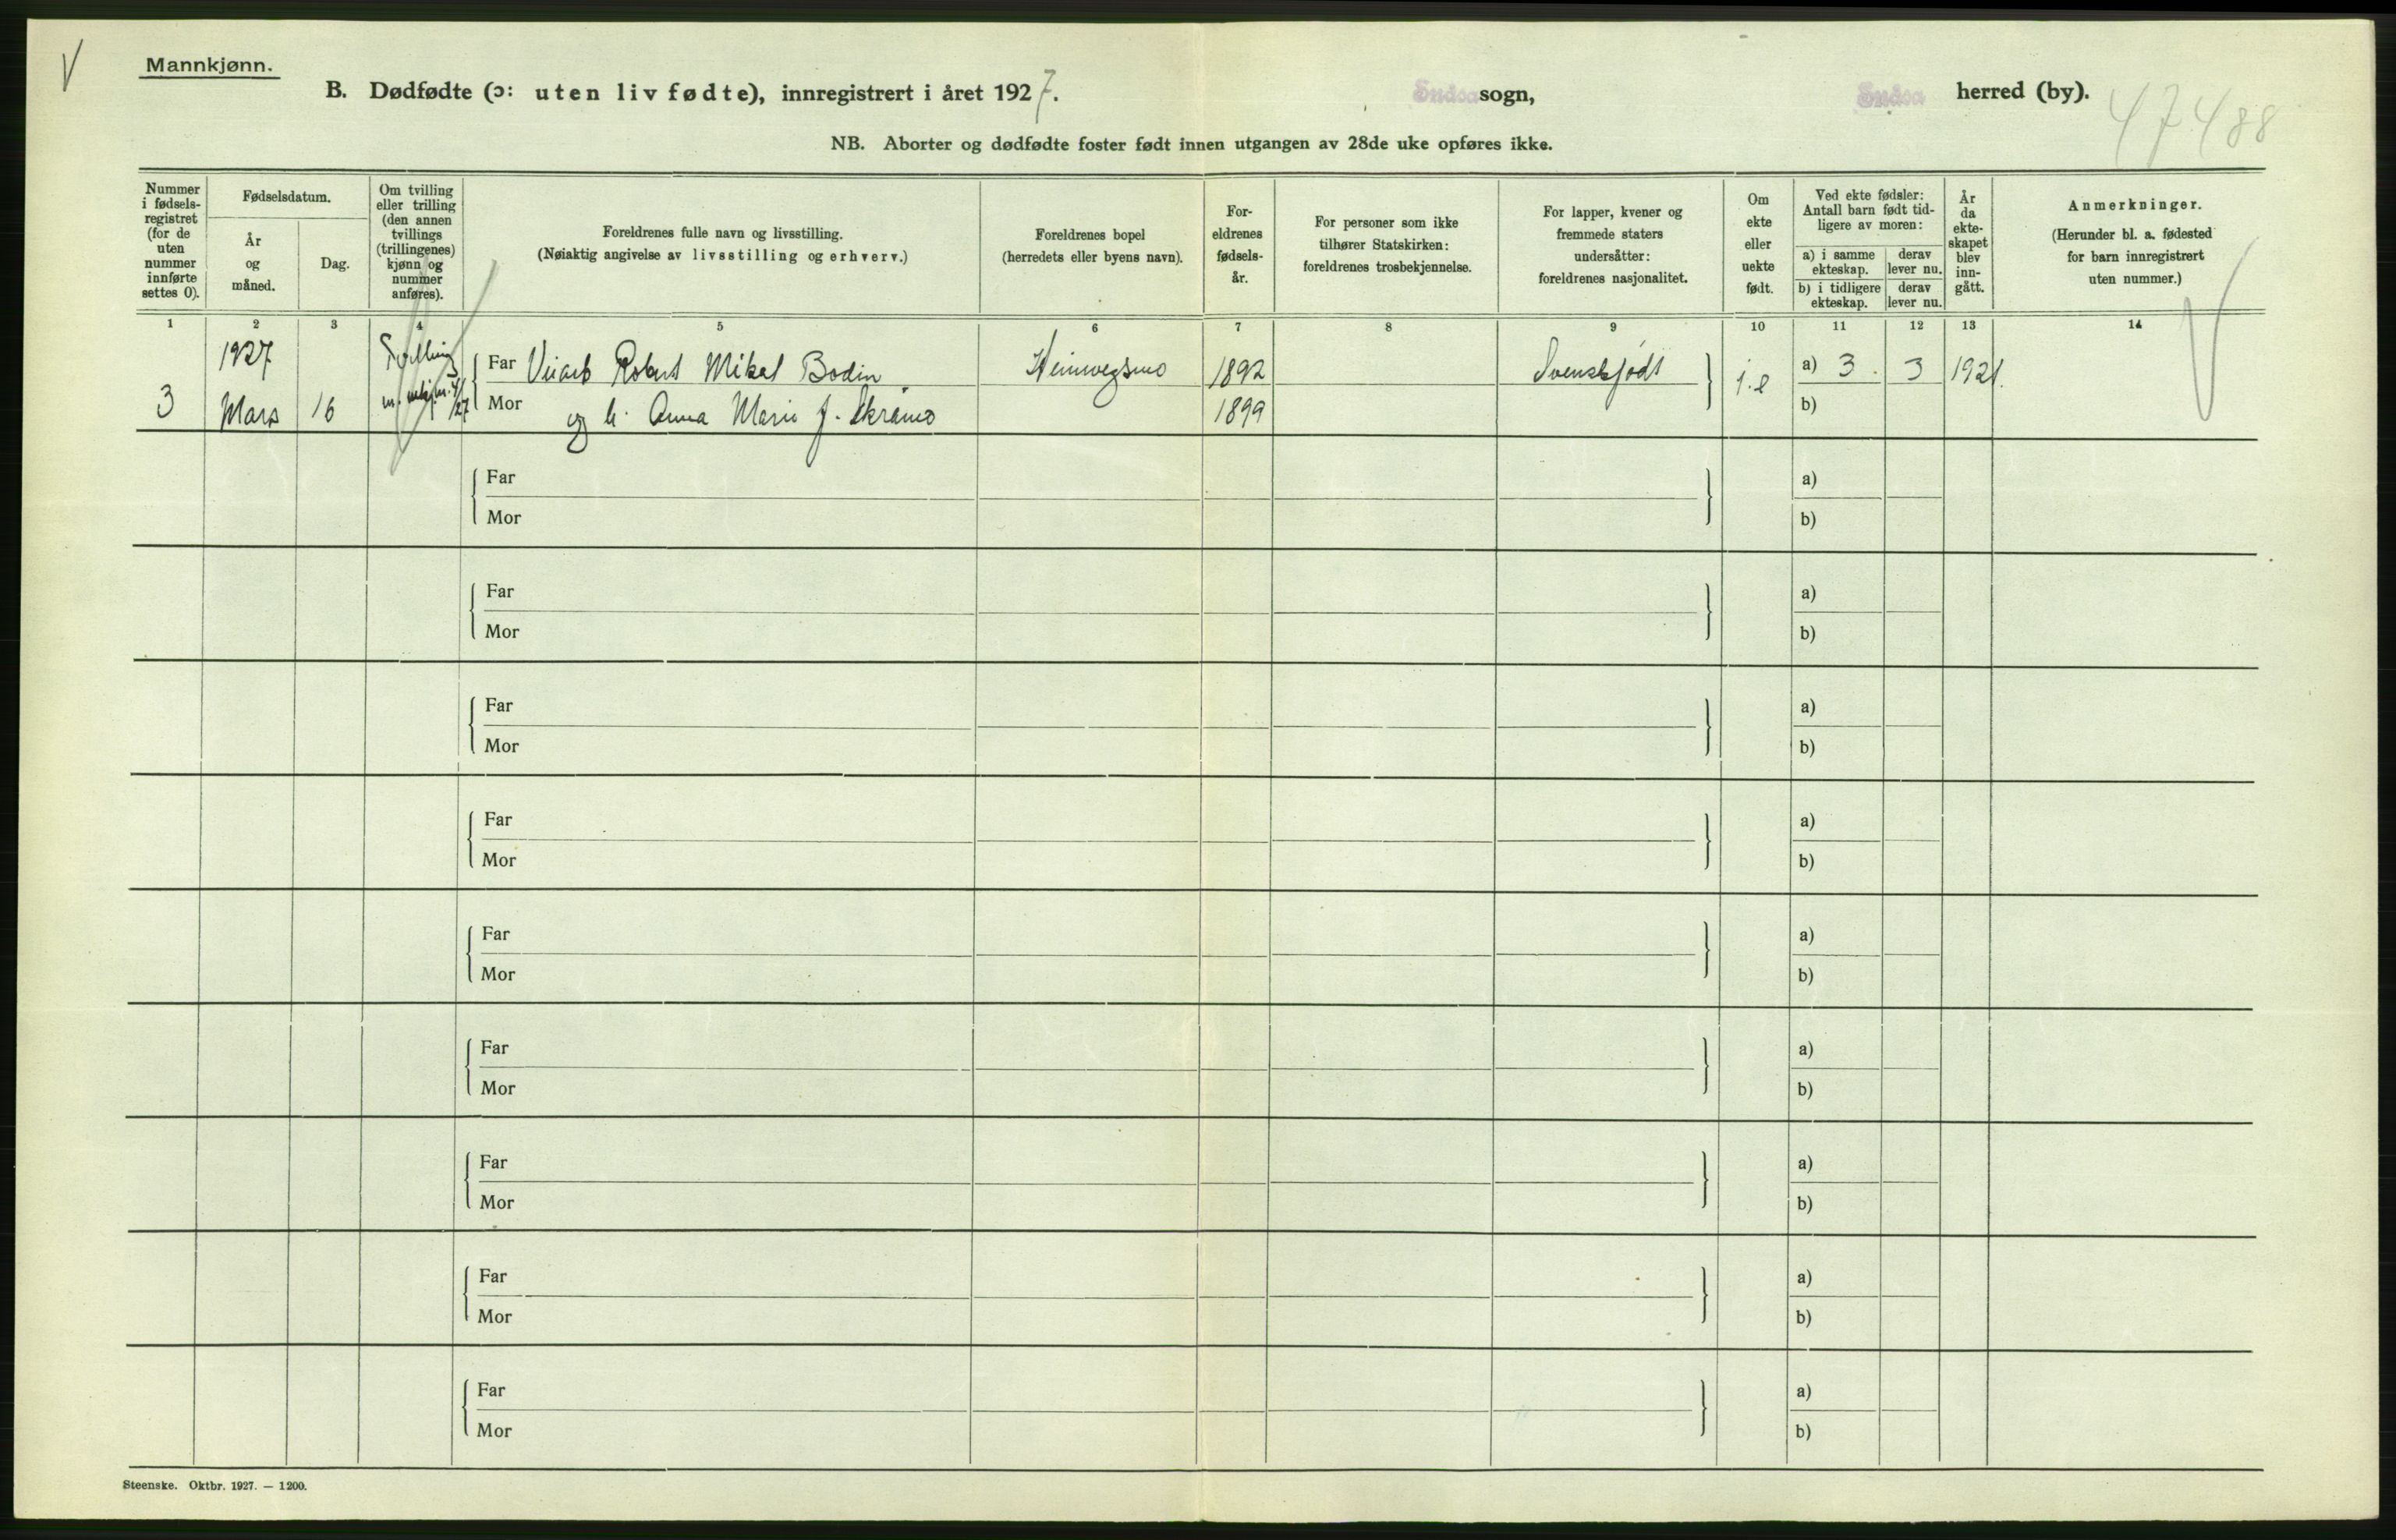 Mannkjønn.
B. Dødfødte (ɔ: uten liv fødte), innregistrert i året 1927. Snåsa sogn, Snåsa herred (by).
47488
NB. Aborter og dødfødte foster født innen utgangen av 28de uke opføres ikke.
Nummer i fødsels-registret (for de uten nummer innførte settes 0).
Fødselsdatum.
År og måned.
Dag.
Om tvilling eller trilling (den annen tvillings (trillingenes) kjønn og nummer anføres).
Foreldrenes fulle navn og livsstilling.
(Nøiaktig angivelse av livsstilling og erhverv.)
Foreldrenes bopel
(herredets eller byens navn).
For-eldrenes fødsels-år.
For personer som ikke tilhører Statskirken: foreldrenes trosbekjennelse.
For lapper, kvener og fremmede staters undersåtter: foreldrenes nasjonalitet.
Om ekte eller uekte født.
Ved ekte fødsler: Antall barn født tid-ligere av moren:
a) i samme ekteskap.
derav lever nu.
b) i tidligere ekteskap.
derav lever nu.
År da ekte-skapet blev inn-gått.
Anmerkninger.
(Herunder bl. a. fødested for barn innregistrert uten nummer.)
1 2 3 4 5 6 7 8 9 10 11 12 13 14
1927 Tvilling Far Robert Mikal Bodin 1892 Svenskfødt a) 3 3 1921.
3 Mars 16 Mor og h. Anna Marie f. 1899 b)
Far a)
Mor b)
Far a)
Mor b)
Far a)
Mor b)
Far a)
Mor b)
Far a)
Mor b)
Far a)
Mor b)
Far a)
Mor b)
Far a)
Mor b)
Far a)
Mor b)
Steenske. Oktbr. 1927. — 1200.